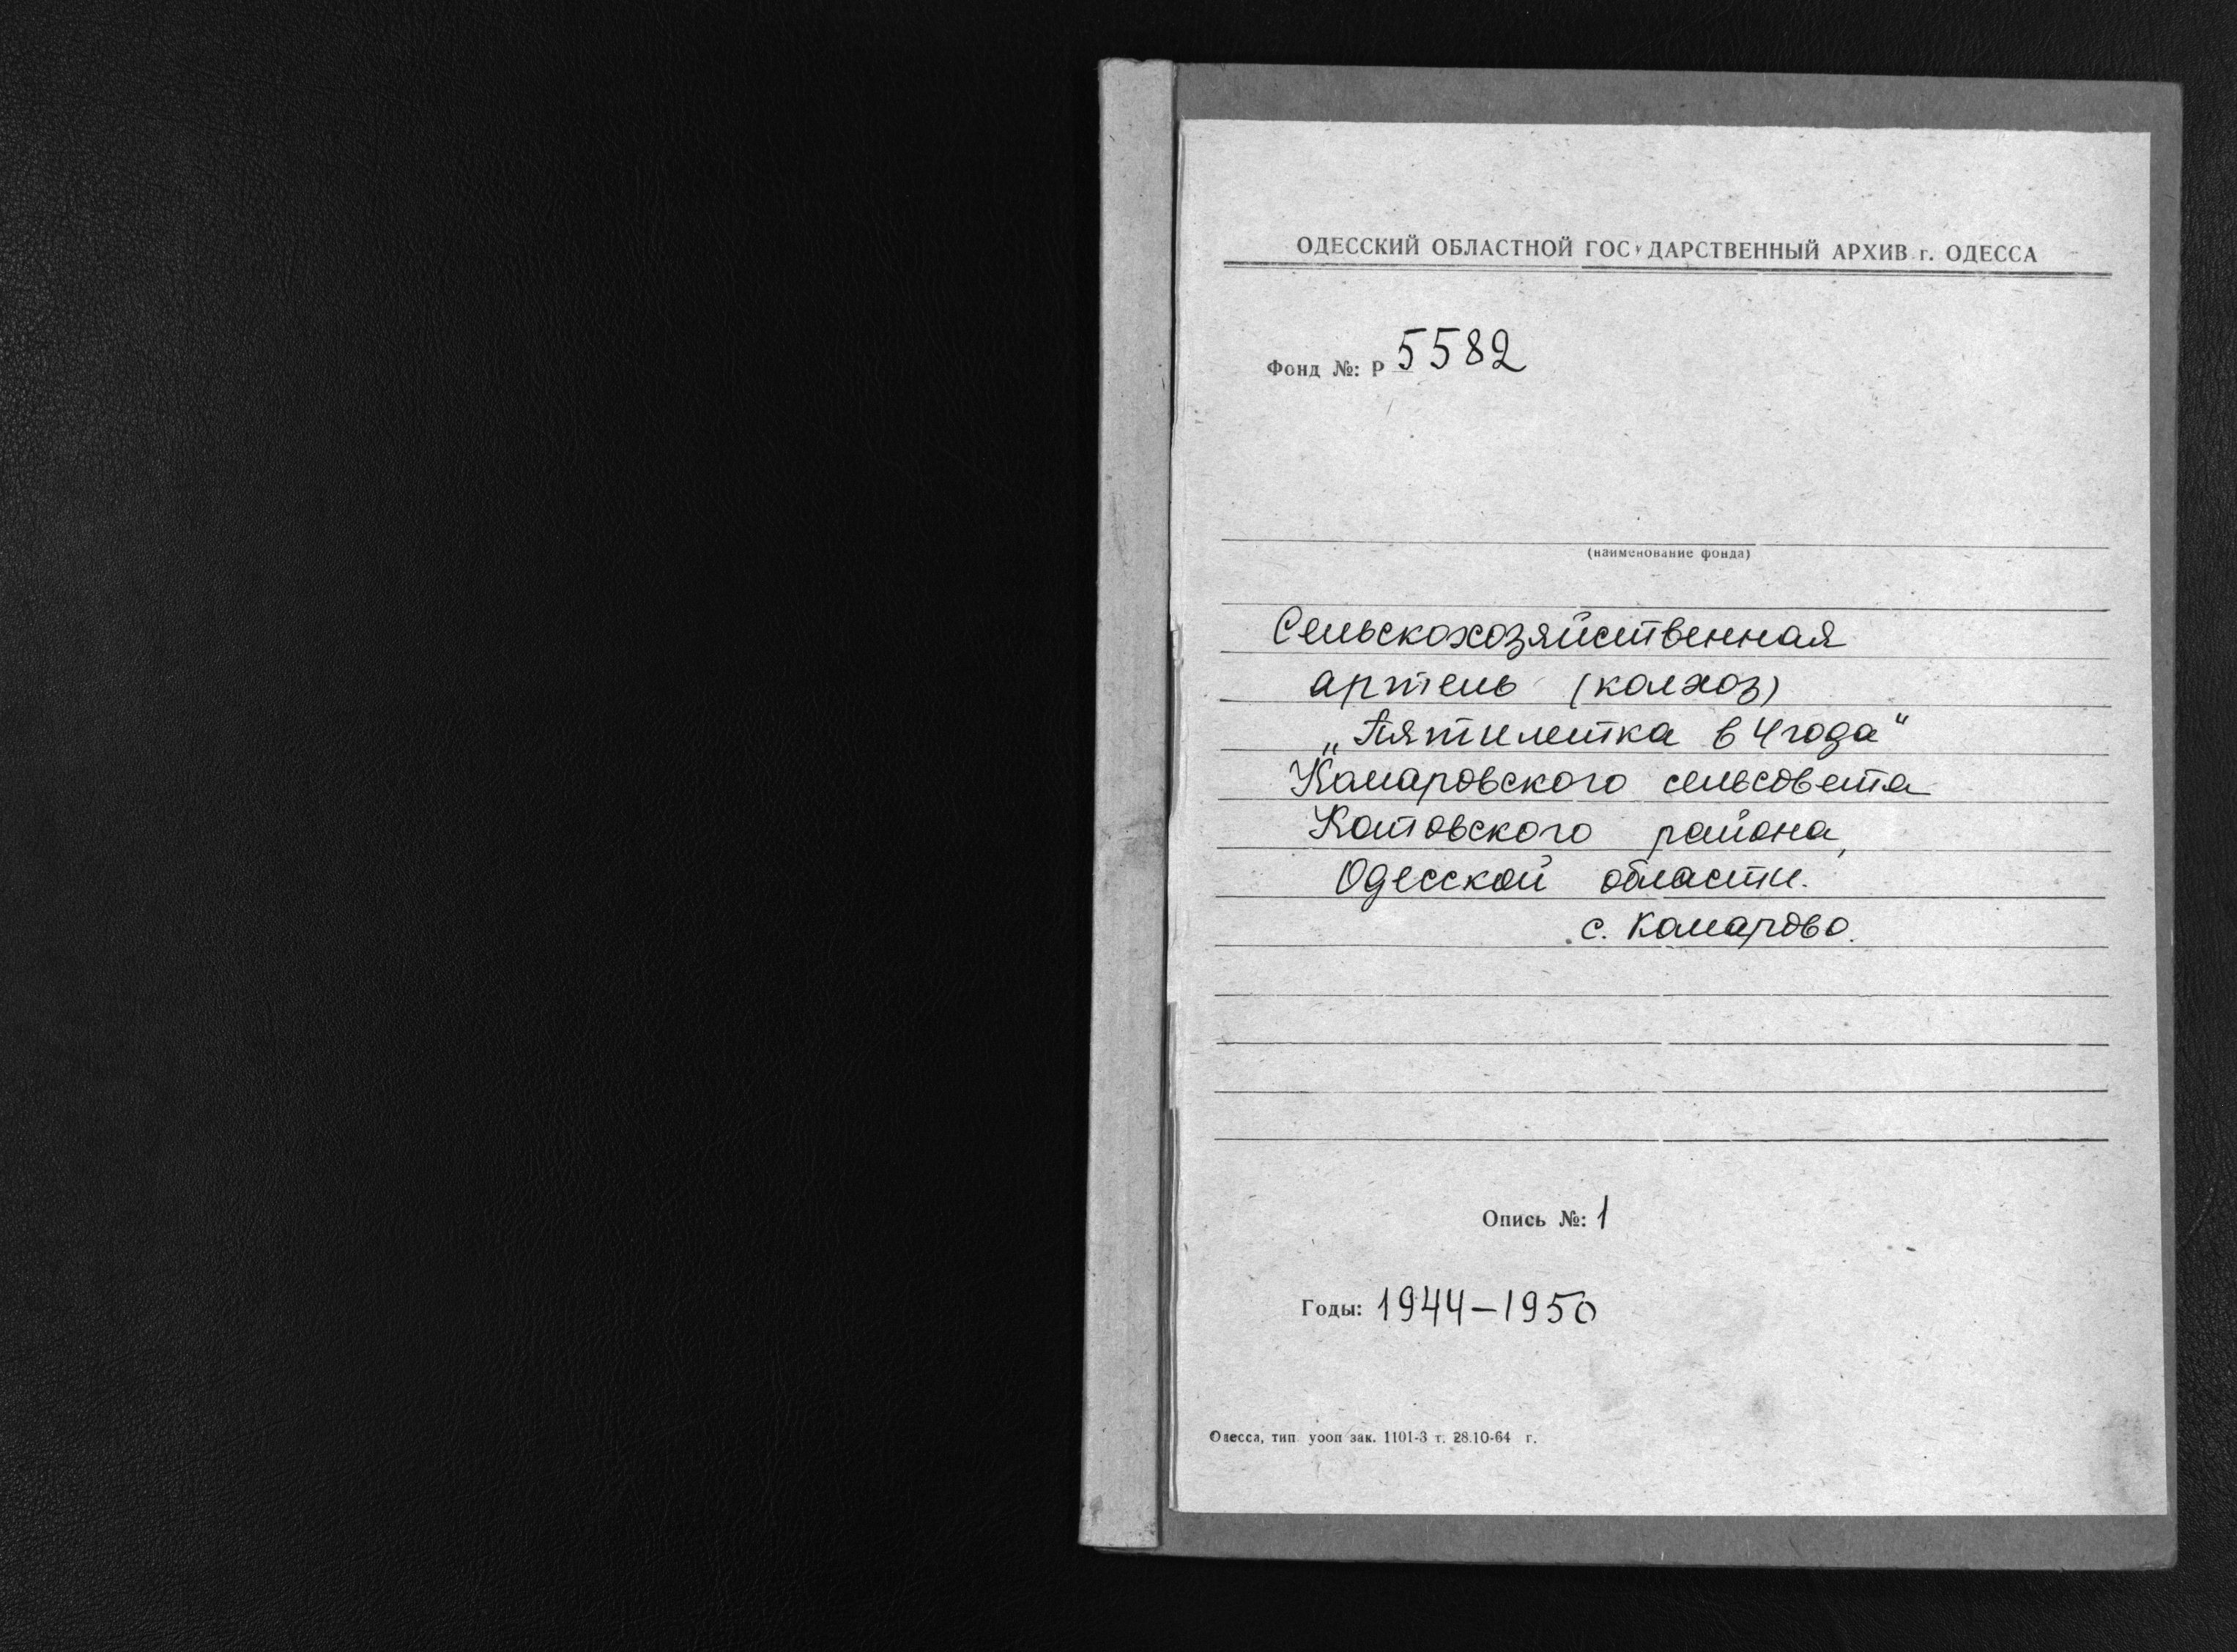 ОДЕССКИЙ ОБЛАСТНОЙ ГОСУДАРСТВЕННЫЙ АРХИВ г. ОДЕССА
Фонд №: Р 5582
(наименование фонда)
Сельскохозяйственная
артель (колхоз)
„Пятилетка в 4 года"
Комаровского сельсовета
Котовского района,
Одесской области.
с. Комарово.
Опись №: 1
Годы: 1944–1950
Одесса, тип. уооп зак. 1101-3 т. 28.10-64 г.